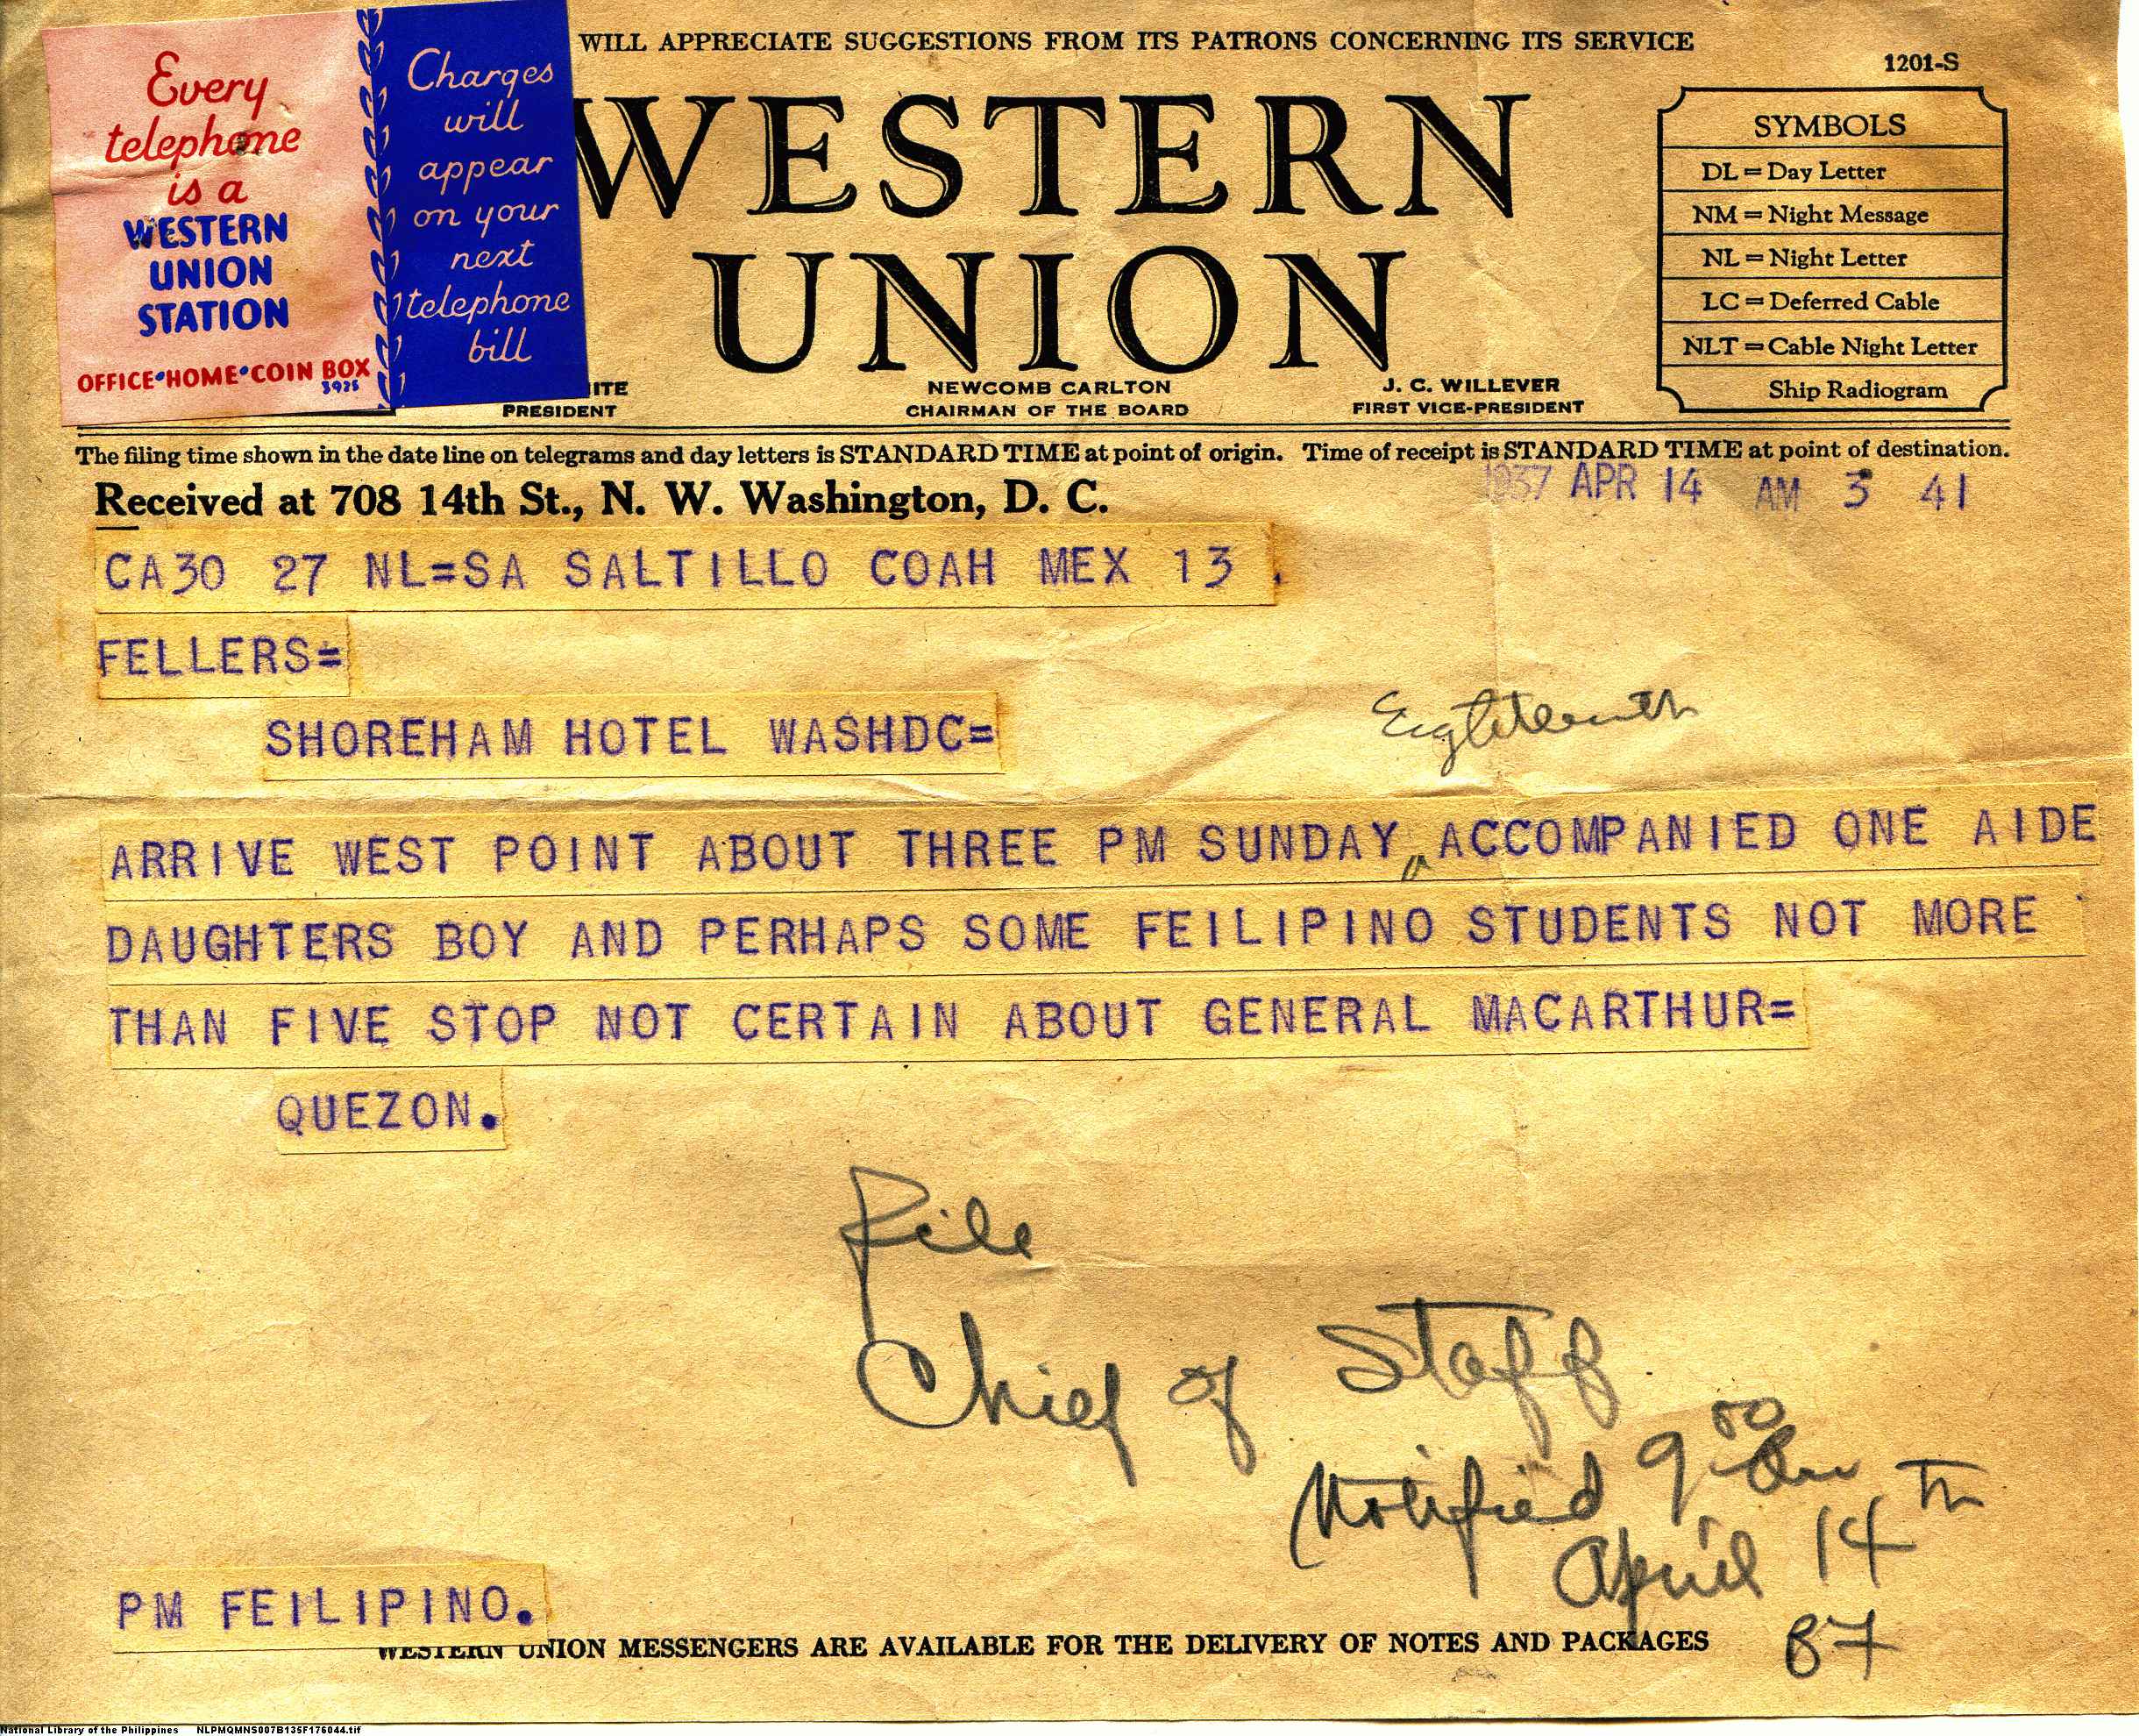 WILL APPRECIATE SUGGESTIONS FROM ITS PATRONS CONCERNING ITS SERVICE
1201-S
Every
telephone
is a
WESTERN
UNION
STATION
OFFICE•HOME•COIN BOX
Charges
will
appear
on your
next
telephone
bill
WESTERN
UNION
SYMBOLS
DL = Day Letter
NM = Night Message
NL = Night Letter
LC = Deferred Cable
NLT = Cable Night Letter
Ship Radiogram
PRESIDENT
NEWCOMB CARLTON
CHAIRMAN OF THE BOARD
J. C. WILLEVER
FIRST VICE-PRESIDENT
The filing time shown in the date line on telegrams and day letters is STANDARD TIME at point of origin. Time of receipt is STANDARD TIME at point of destination.
Received at 708 14th St., N. W. Washington, D. C.
1937 APR 14 AM 3 41
CA30 27 NL=SA SALTILLO COAH MEX 13
FELLERS=
SHOREHAM HOTEL WASHDC=
Eighteenth
ARRIVE WEST POINT ABOUT THREE PM SUNDAY ACCOMPANIED ONE AIDE
DAUGHTERS BOY AND PERHAPS SOME FEILIPINO STUDENTS NOT MORE
THAN FIVE STOP NOT CERTAIN ABOUT GENERAL MACARTHUR=
QUEZON.
File
Chief of Staff
Notified 9 00 am
April 14 Th
PM FEILIPINO.
WESTERN UNION MESSENGERS ARE AVAILABLE FOR THE DELIVERY OF NOTES AND PACKAGES
National Library of the Philippines NLPMQMNS007B135F176044.tif